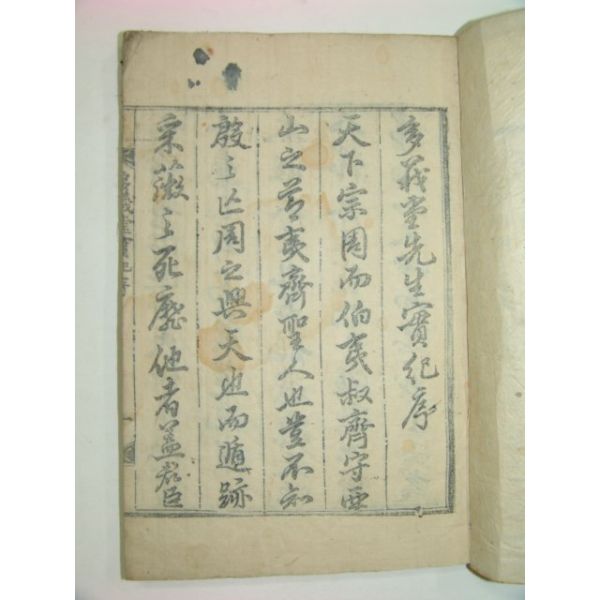 多義堂先生實紀序
天下宗周而伯夷叔齊守西
山之節夷齊聖人也豈不知
殷之亡周之興天也而遁跡
采薇之死靡他者盖君臣